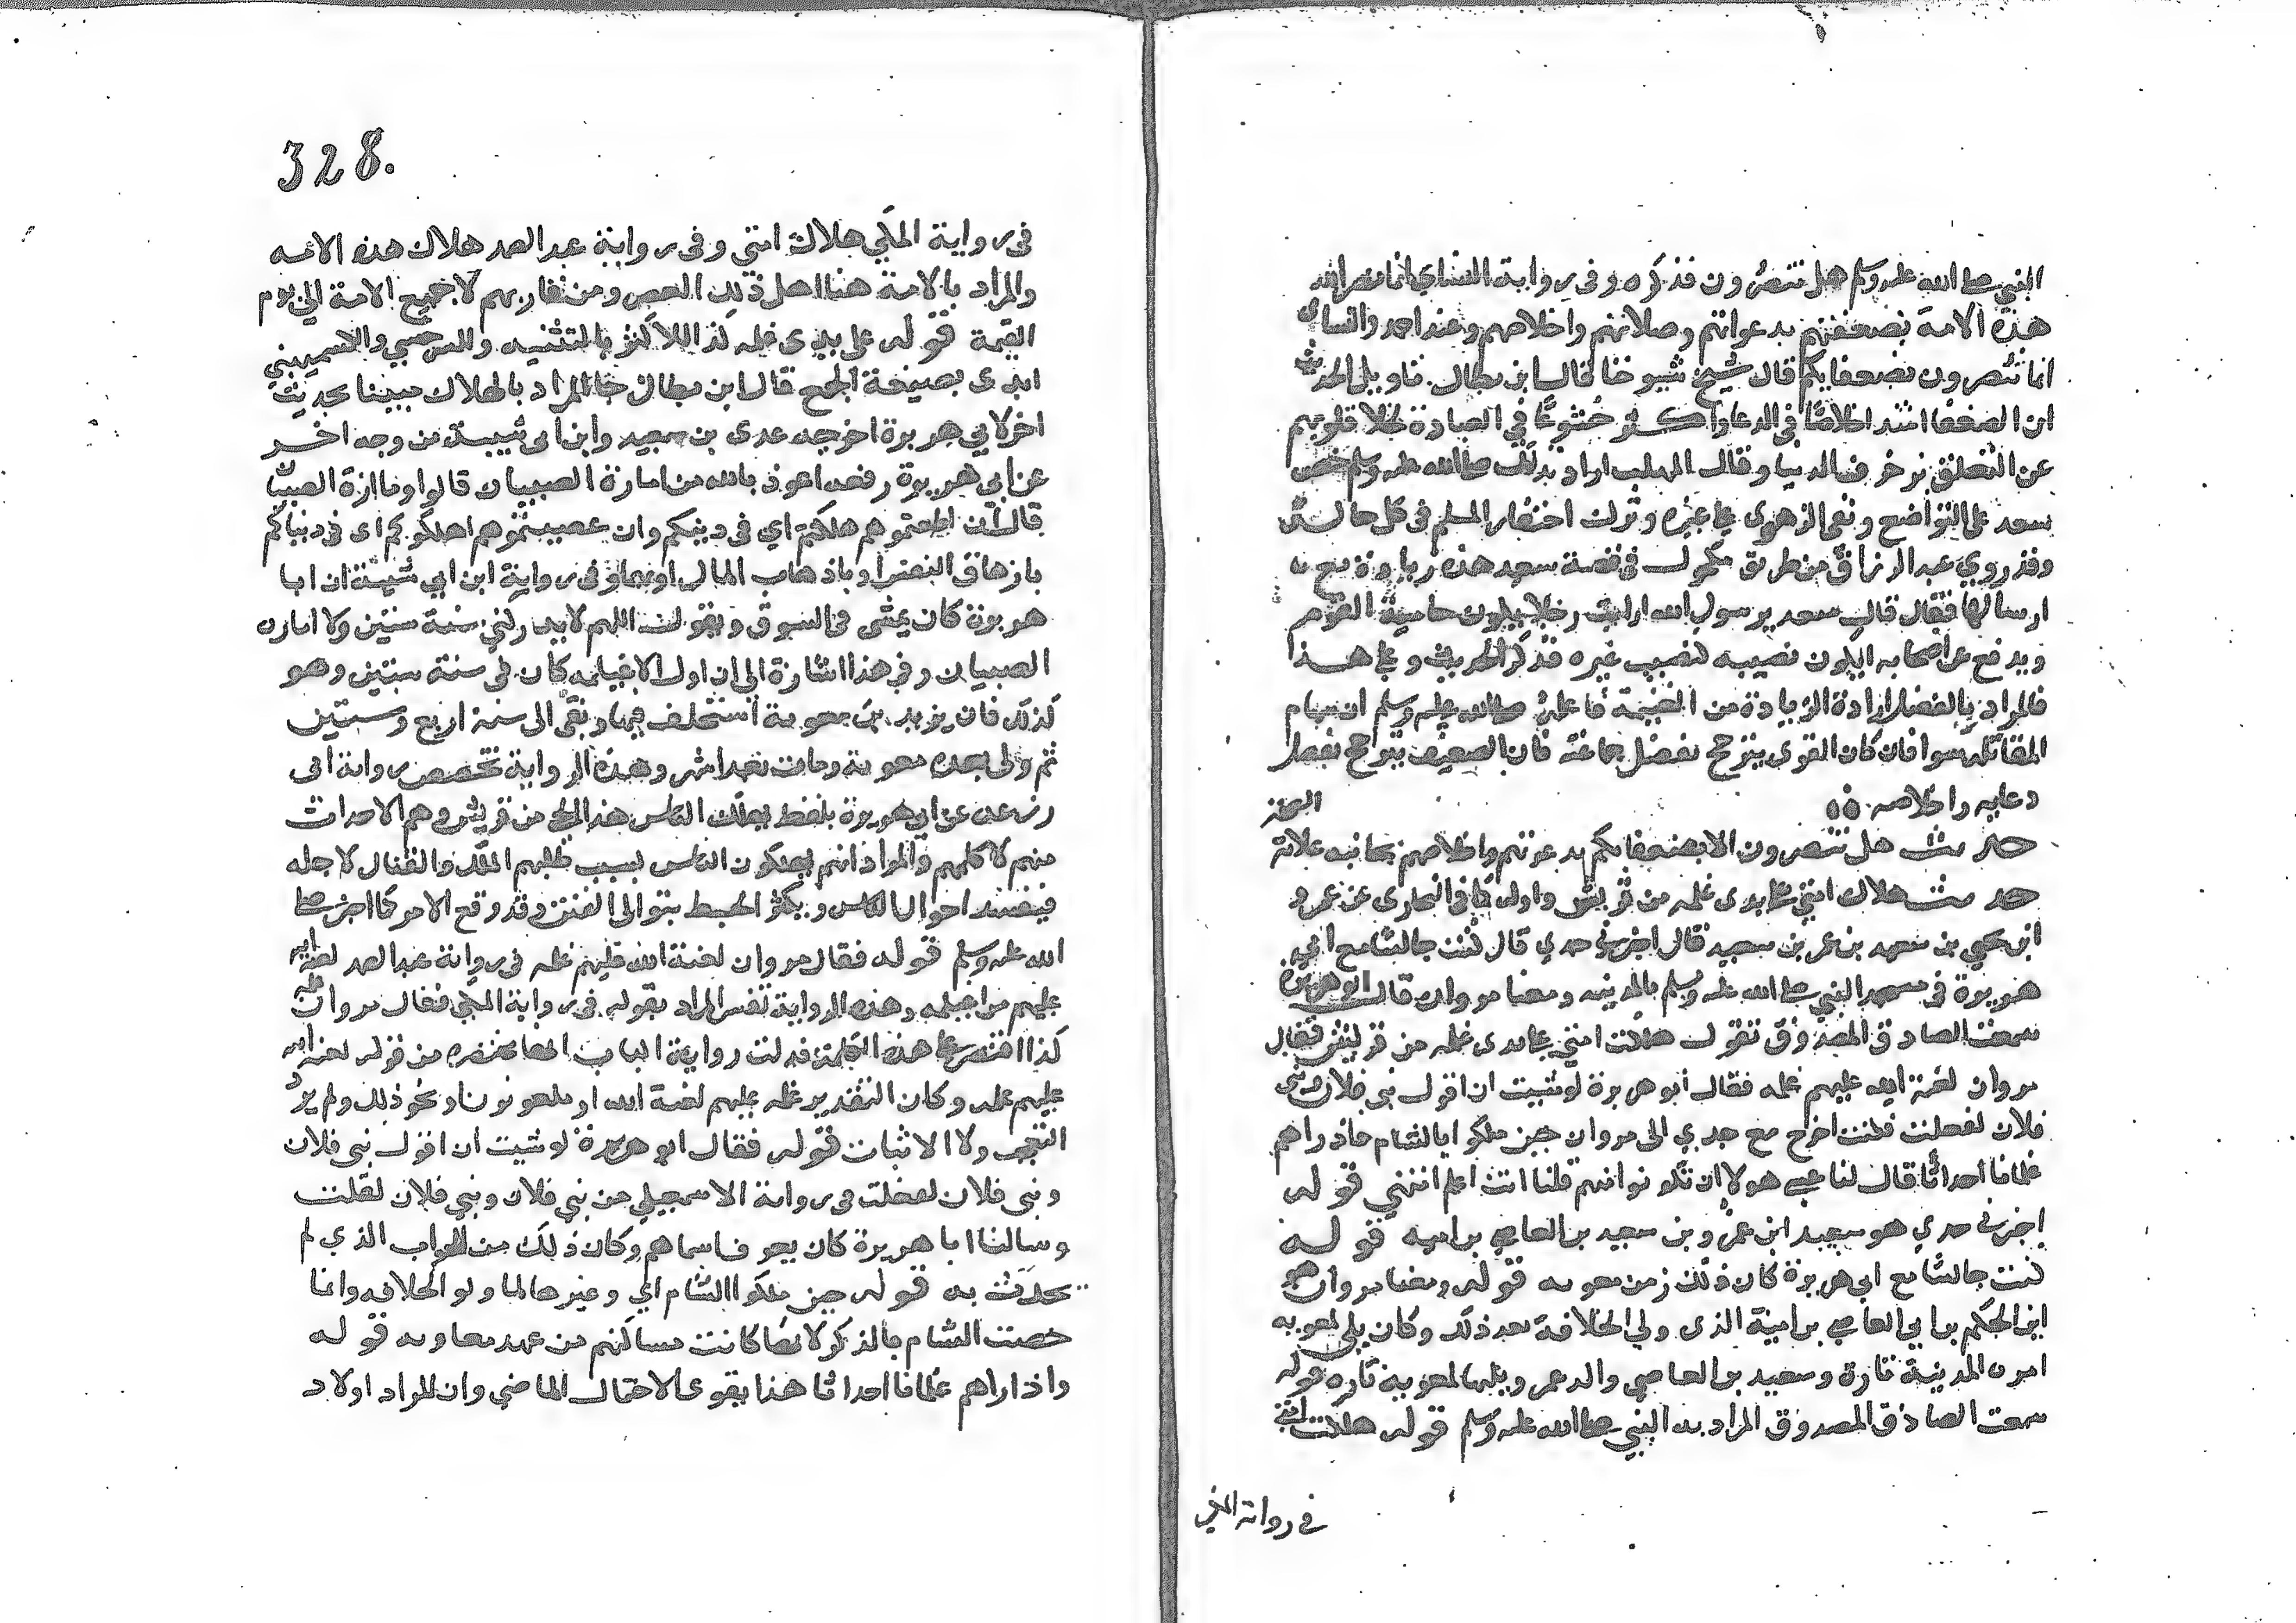 النبي صلى الله عليه وسلم هل تنصرون فذكره وفي رواية النساي انما نصر الله
هذه الامة بضعفتهم بدعواتهم وصلاتهم واخلاصهم وعند احمد والنساي
انما تنصرون بضعفايكم قال شيخ شيوخنا قال ابن بطال تاويل الحديث
ان الضعفا اشد اخلاصا في الدعا واكثر خشوعا في العبادة لخلا قلوبهم
عن التعلق بزخرف الدنيا وقال المهلب اراد بذلك صلى الله عليه وسلم حض
سعد على التواضع ونفى الزهوى على غيره وترك احتقار المسلم في كل حالة
وقد روي عبد الرزاق من طريق مكحول في قصة سعد هذه زيادة مع
ارسالها فقال قال سعد يرسول الله ارايت رجلا يكون حامية القوم
ويدفع عن اصحابه ايكون نصيبه كنصيب غيره فذكر الحديث وعلى هذا
فالمراد بالفضل ارادة الزيادة من الغنيمة فاعلمه صلى الله عليه وسلم ان سهام
المقاتلة سوا فان كان القوى يترجح بفضل شجاعته فان الضعيف يترجح بفضل
دعايه واخلاصه
حديث هل تنصرون الا بضعفايكم بدعوتهم واخلاصهم
حديث هلاك امتي على يدى غلمه من قريش واوله كما في البخارى عن عمرو
ابن يحيى بن سعيد بن عمر بن سعيد قال اخبرني جدي قال كنت جالسا مع ابي
هريرة في مسجد النبي صلى الله عليه وسلم بالمدينه ومعنا مروان قال ابو هريرة
سمعت الصادق المصدوق تقول هلكت امتي على يدى غلمه من قريش فقال
مروان لعنة الله عليهم غلمه فقال ابو هريرة لو شيت ان اقول بني فلان وبنى
فلان لفعلت فكنت اخرج مع جدي الى مروان حين ملكوا بالشام فاذا راهم
غلمانا احداثا قال لنا عسى هولا ان تكونوا منهم قلنا انت اعلم انتهي قوله
اخبرني جدي هو سعيد ابن عمرو بن سعيد بن العاصي بن اميه قوله
كنت جالسا مع ابي هريرة كان ذلك زمن معويه قوله ومعنا مروان هو
ابن الحكم بن ابي العاصي بن امية الذى ولي الخلافة بعد ذلك وكان يلي لمعويه
امرة المدينة تارة وسعيد بن العاصي والد عمر ويليها لمعوية تاره قوله
سمعت الصادق المصدوق المراد به النبي صلى الله عليه وسلم قوله هلكت امتي
في رواية المكي
328.
في رواية المكي هلاك امتي وفي رواية عبد الصمد هلاك هذه الامه
والمراد بالامة هنا اهل ذلك العصر ومن يقاربهم لا جميع الامة الى يوم
القيمة قوله على يدى غلمه كذا للاكثر بالتثنيه وللسرخسي والكشميهني
ايدى بصيغة الجمع قال ابن بطال جا المراد بالهلاك مبينا بحديث
اخر لابي هريرة اخرجه عدى بن سعيد وابن ابي شيبة من وجه اخر
عن ابي هريرة رفعه اعوذ بالله من امارة الصبيان قالوا وما امارة الصبيان
قال ان اطعتموهم هلكتم اي في دينكم وان عصيتموهم اهلكوكم اى في دنياكم
بازهاق النفس او باذهاب المال او بهما وفي رواية ابن ابي شيبة ان ابا
هريرة كان يمشى في السوق ويقول اللهم لا يدركني سنة ستين ولا امارة
الصبيان وفي هذا اشارة الى ان اول الاغيلمه كان في سنة ستين وهو
كذلك فان يزيد بن معوية استخلف فيها وبقى الى سنة اربع وستين
ثم ولى بعده معوية ومات بعد اشهر وهذه الرواية تخصص رواية ابى
زرعه عن ابي هريرة بلفظ يهلك الناس هذا الحي من قريش وهم الاحداث
منهم لا كلهم والمراد انهم يهلكون الناس بسبب طلبهم الملك والقتال لاجله
فيفسد احوال الناس ويكثر الخبط بتوالى الفتن وقد وقع الامر كما اخبر صلى
الله عليه وسلم قوله فقال مروان لعنة الله عليهم غلمه في رواية عبد الصمد لعنة الله
عليهم من اغيلمه وهذه الرواية تفسر المراد بقوله في رواية المكي فقال مروان غلمه
كذا اقتصر على هذه الكلمة فدلت رواية الباب انها مختصره من قوله لعنة الله
عليهم غلمه وكان التقدير غلمه عليهم لعنة الله او ملعونون او نحو ذلك ولم يرد
التعجب ولا الاثبات قوله فقال ابو هريرة لو شيت ان اقول بني فلان
وبنى فلان لفعلت في رواية الاسمعيلي من بني فلان وبني فلان لقلت
وسالنا ابا هريرة كان يعرف اسماهم وكان ذلك من الجواب الذي لم
يحدث به قوله حين ملكوا الشام اي وغيرها لما ولو الخلافه وانما
خصت الشام بالذكر لانها كانت مساكنهم من عهد معاويه قوله
واذا راهم غلمانا احداثا هذا يقوى الاحتمال الماضي وان المراد اولاد